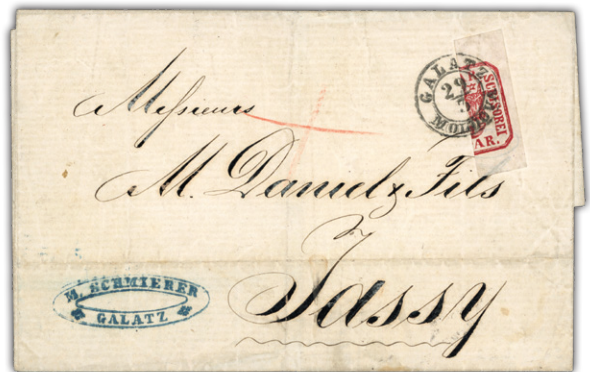 GALATZ
29/3
MOLDOVA
SCRISOREI
AR.
Messieurs
M. Daniel & Fils
Jassy
M. SCHMIERER
GALATZ